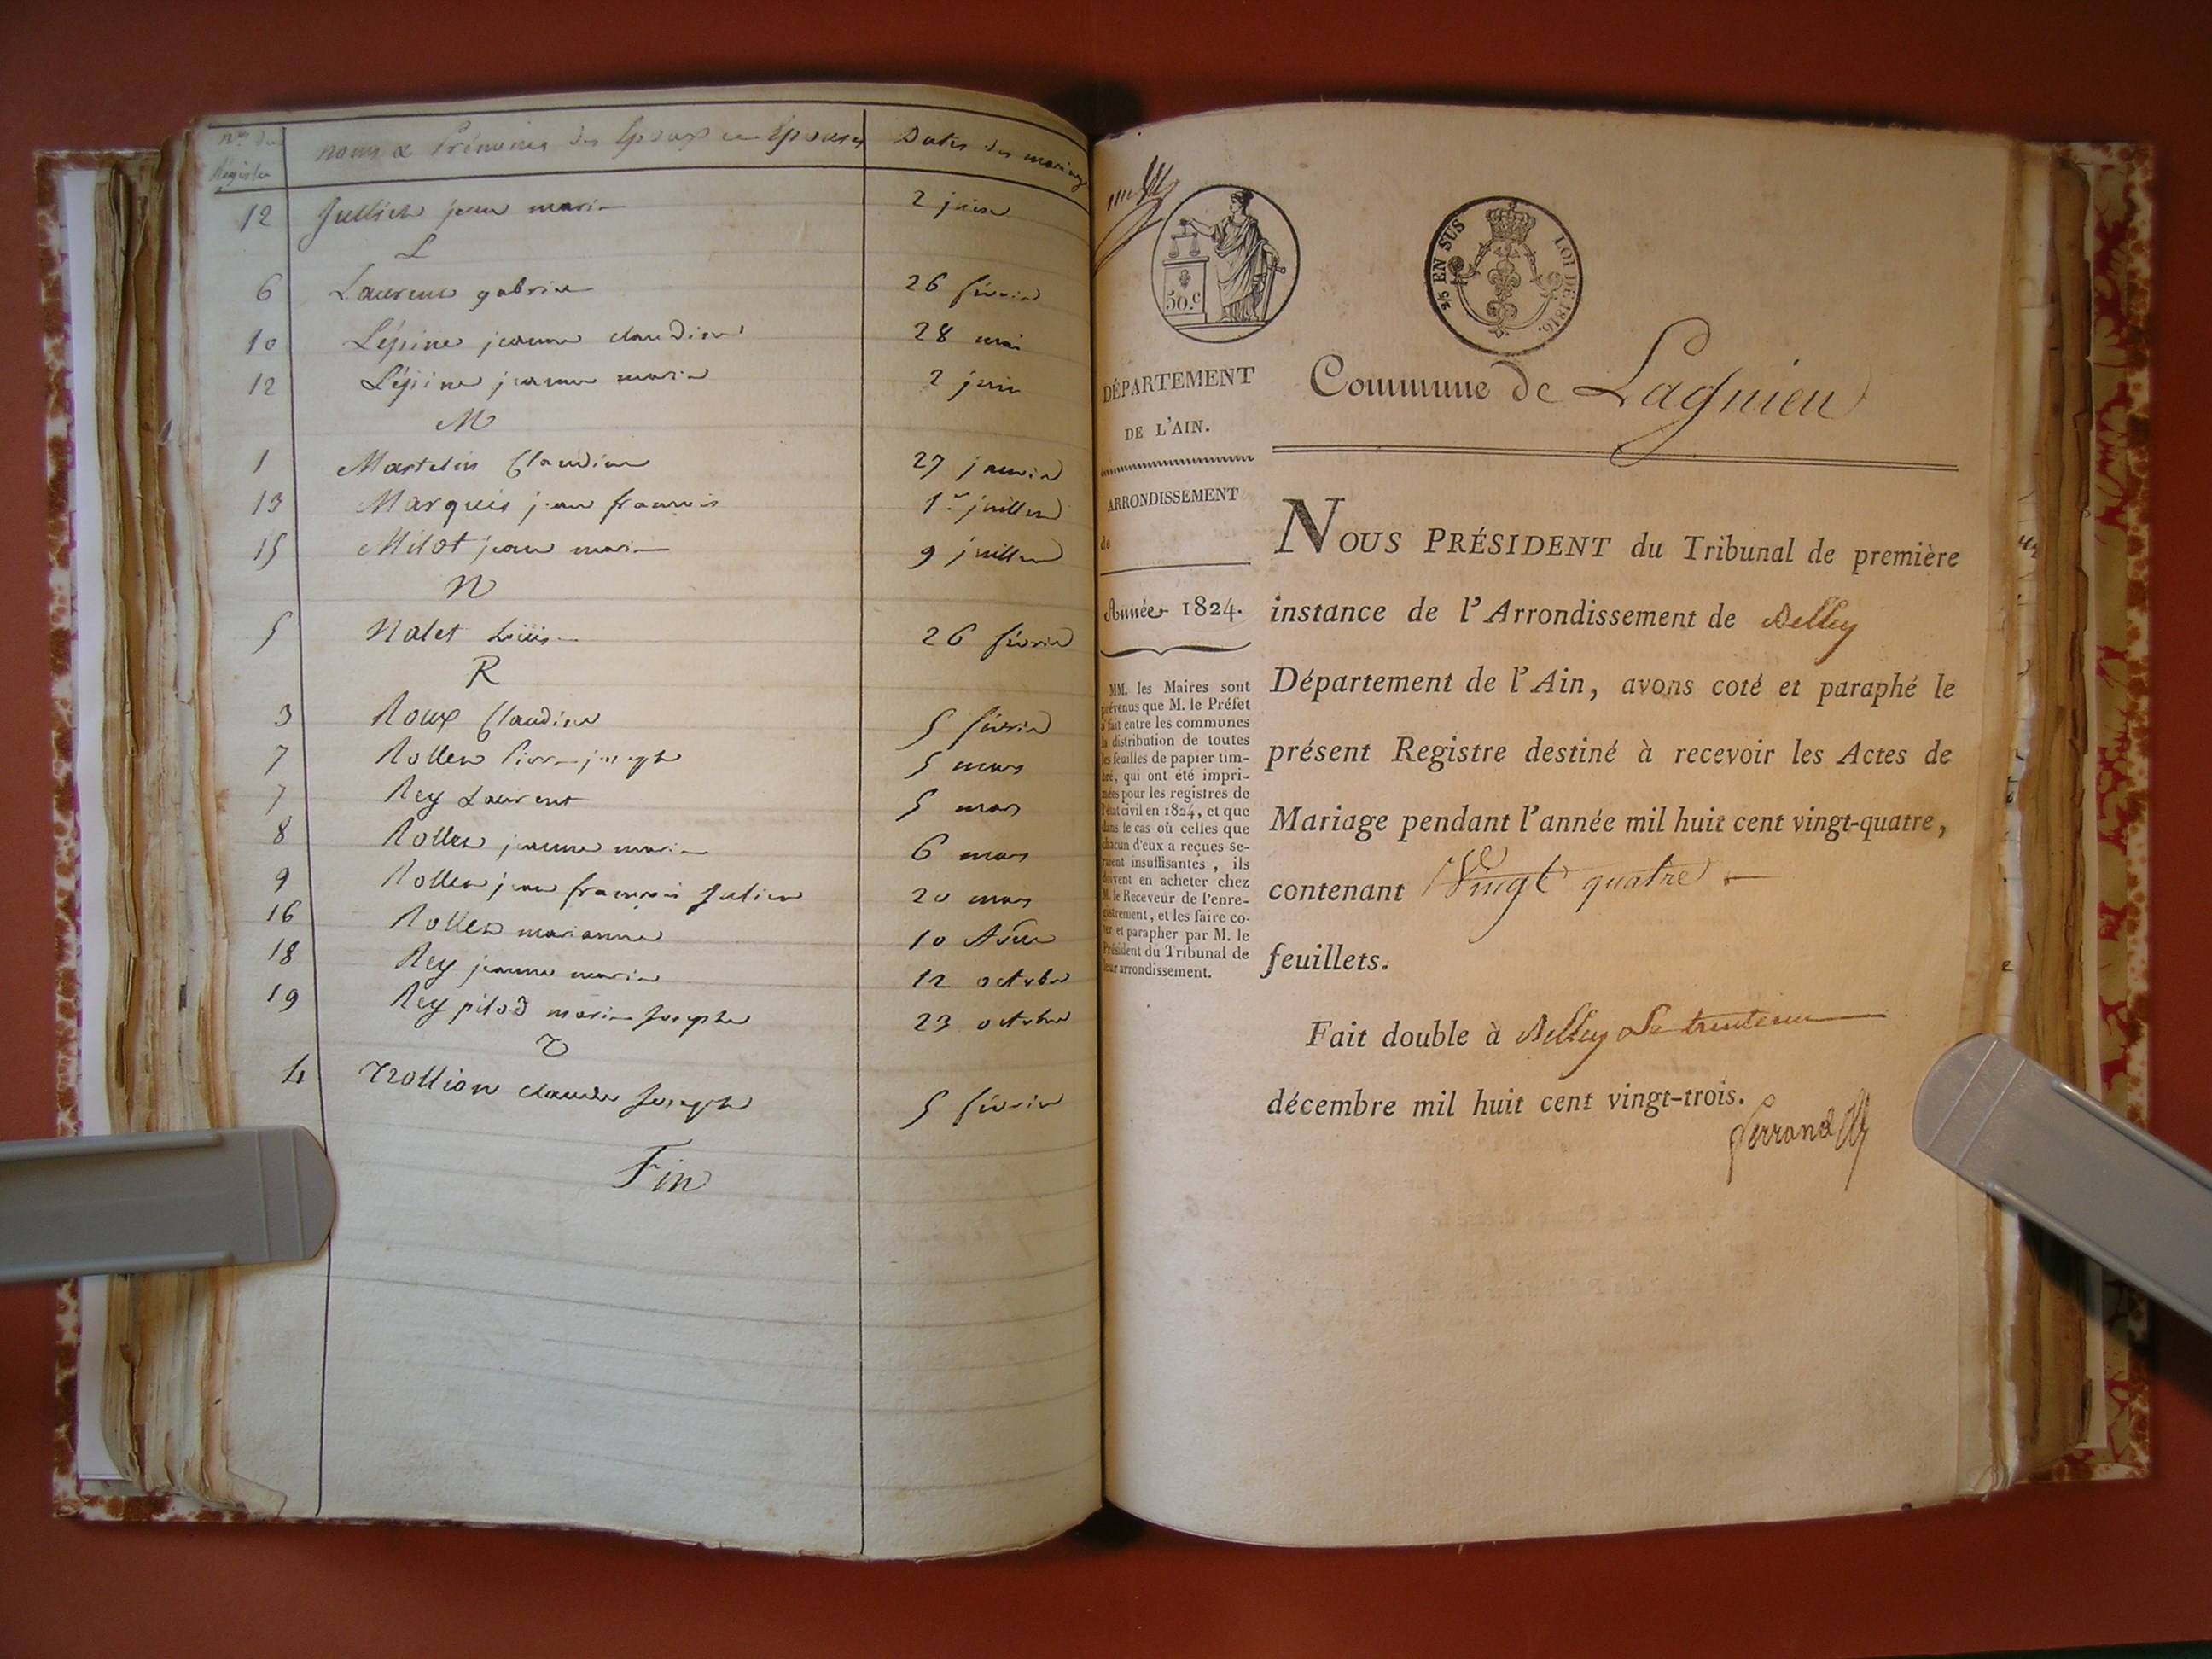 nos du Registre | noms & Prénoms des Epoux et Epouses | Dates des mariages
12 Jullien jean marie 2 juin
L
6 Laurent gabriel 26 février
10 Lépine jeanne claudine 28 mai
12 Lépine jeanne marie 2 juin
M
1 Martelin Claudine 27 janvier
13 Marquis jean francois 1er juillet
15 Milot jean marie 9 juillet
N
5 Nalet Louis 26 février
R
3 Roux Claudine 5 février
7 Rollet Pierre joseph 5 mars
7 Rey Laurent 5 mars
8 Rollet jeanne marie 6 mars
9 Rollet jean francois Julien 20 mars
16 Rollet marianne 10 Août
18 Rey jeanne marie 12 octobre
19 Rey pilod marie Josephe 23 octobre
T
4 Trollion claude Joseph 5 février
Fin
50.c
25 EN SUS LOI DE 1816.
DÉPARTEMENT
DE L'AIN.
ARRONDISSEMENT
de
Année 1824.
MM. les Maires sont
prévenus que M. le Préfet
a fait entre les communes
la distribution de toutes
les feuilles de papier tim-
bré, qui ont été impri-
mées pour les registres de
l'état civil en 1824, et que
dans le cas où celles que
chacun d'eux a reçues se-
raient insuffisantes, ils
doivent en acheter chez
M. le Receveur de l'enre-
gistrement, et les faire co-
ter et parapher par M. le
Président du Tribunal de
leur arrondissement.
Commune de Lagnieu
NOUS PRÉSIDENT du Tribunal de première
instance de l'Arrondissement de Belley
Département de l'Ain, avons coté et paraphé le
présent Registre destiné à recevoir les Actes de
Mariage pendant l'année mil huit cent vingt-quatre,
contenant Vingt quatre
feuillets.
Fait double à Belley Le trente un
décembre mil huit cent vingt-trois.